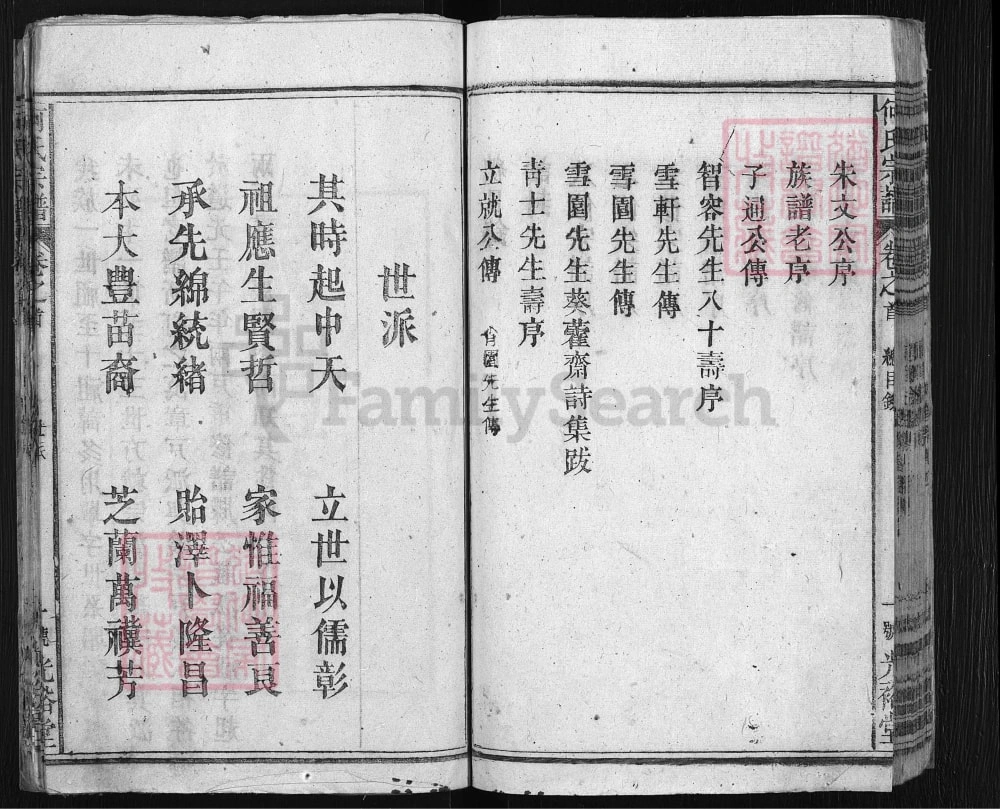 何氏宗譜 卷之首 總目錄 一號 光裕堂
朱文公序
族譜老序
子通公傳
智容先生八十壽序
雪軒先生傳
雪園先生傳
雪園先生葵藿齋詩集跋
青士先生壽序
立就公傳 育園先生傳
世派
其時起中天 立世以儒彰
祖應生賢哲 家惟福善良
承先綿統緒 貽澤卜隆昌
本大豐苗裔 芝蘭萬禩芳
何氏宗譜 卷之首 世派 一號 光裕堂
FamilySearch